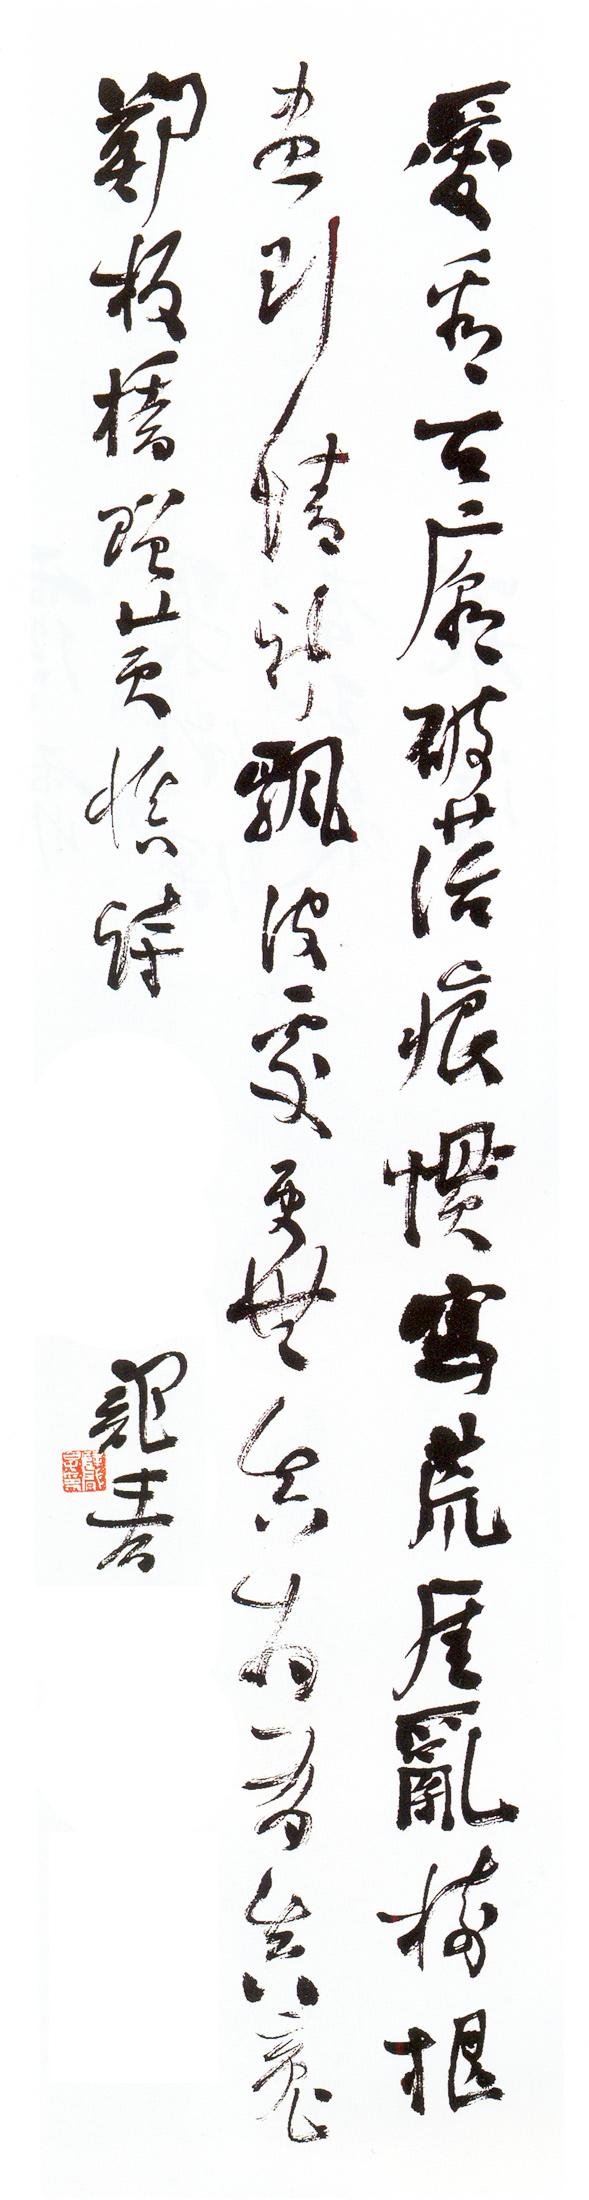 愛看古廟破苔痕慣寫荒崖亂樹根
畫到情神飄沒處更無真相有真魂
鄭板橋贈黃慎詩